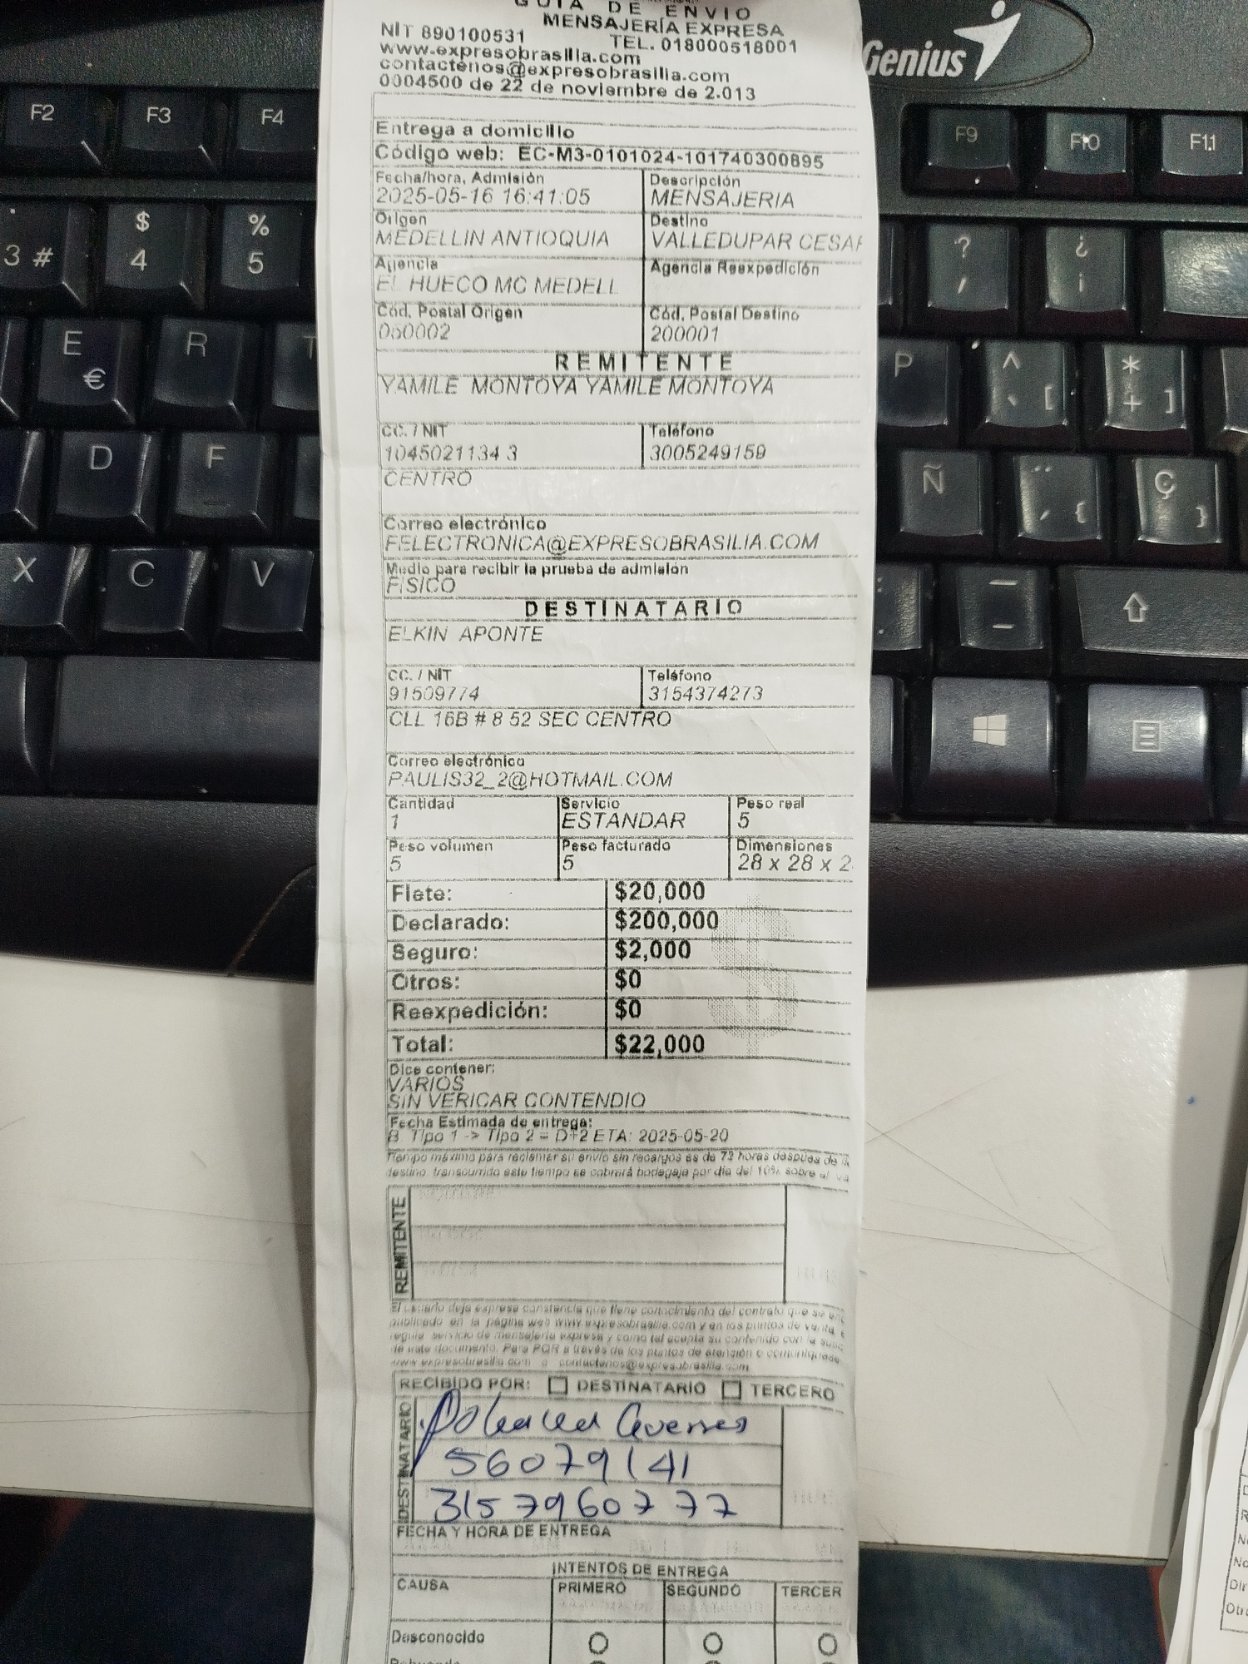 GUIA DE ENVIO
MENSAJERÍA EXPRESA
NIT 890100531 TEL. 018000518001
www.expresobrasilia.com
contactenos@expresobrasilia.com
0004500 de 22 de noviembre de 2.013
Entrega a domicilio
Código web: EC-M3-0101024-101740300895
Fecha/hora, Admisión Descripción
2025-05-16 16:41:05 MENSAJERIA
Origen Destino
MEDELLIN ANTIOQUIA VALLEDUPAR CESAR
Agencia Agencia Reexpedición
EL HUECO MC MEDELL
Cód. Postal Origen Cód. Postal Destino
050002 200001
REMITENTE
YAMILE MONTOYA YAMILE MONTOYA
CC. / NIT Teléfono
1045021134 3 3005249159
CENTRO
Correo electrónico
FELECTRONICA@EXPRESOBRASILIA.COM
Medio para recibir la prueba de admisión
FISICO
DESTINATARIO
ELKIN APONTE
CC. / NIT Teléfono
91509774 3154374273
CLL 16B # 8 52 SEC CENTRO
Correo electrónico
PAULIS32_2@HOTMAIL.COM
Cantidad Servicio Peso real
1 ESTANDAR 5
Peso volumen Peso facturado Dimensiones
5 5 28 x 28 x 2
Flete: $20,000
Declarado: $200,000
Seguro: $2,000
Otros: $0
Reexpedición: $0
Total: $22,000
Dice contener:
VARIOS
SIN VERICAR CONTENDIO
Fecha Estimada de entrega:
8. Tipo 1 -> Tipo 2 = D+2 ETA: 2025-05-20
Tiempo máximo para reclamar su envío sin recargos es de 72 horas después de
destino, transcurrido este tiempo se cobrará bodegaje por día del 10% sobre el
REMITENTE
El usuario deja expresa constancia que tiene conocimiento del contrato que se
publicado en la página web www.expresobrasilia.com y en los puntos de venta,
regula servicio de mensajería expresa y como tal acepta su contenido con la
de este documento. Para PQR a través de los puntos de atención o comuníquese
www.expresobrasilia.com o contactenos@expresobrasilia.com
RECIBIDO POR: DESTINATARIO TERCERO
DESTINATARIO
56079141
3157960777
FECHA Y HORA DE ENTREGA
INTENTOS DE ENTREGA
CAUSA PRIMERO SEGUNDO TERCER
Desconocido
Genius
F2 F3 F4 F9 F10 F11
3 # $ 4 % 5 ? ' ¿ ¡
E € R T P ^ ` [ * + ]
D F Ñ ¨ ´ { Ç }
X C V : . _ -